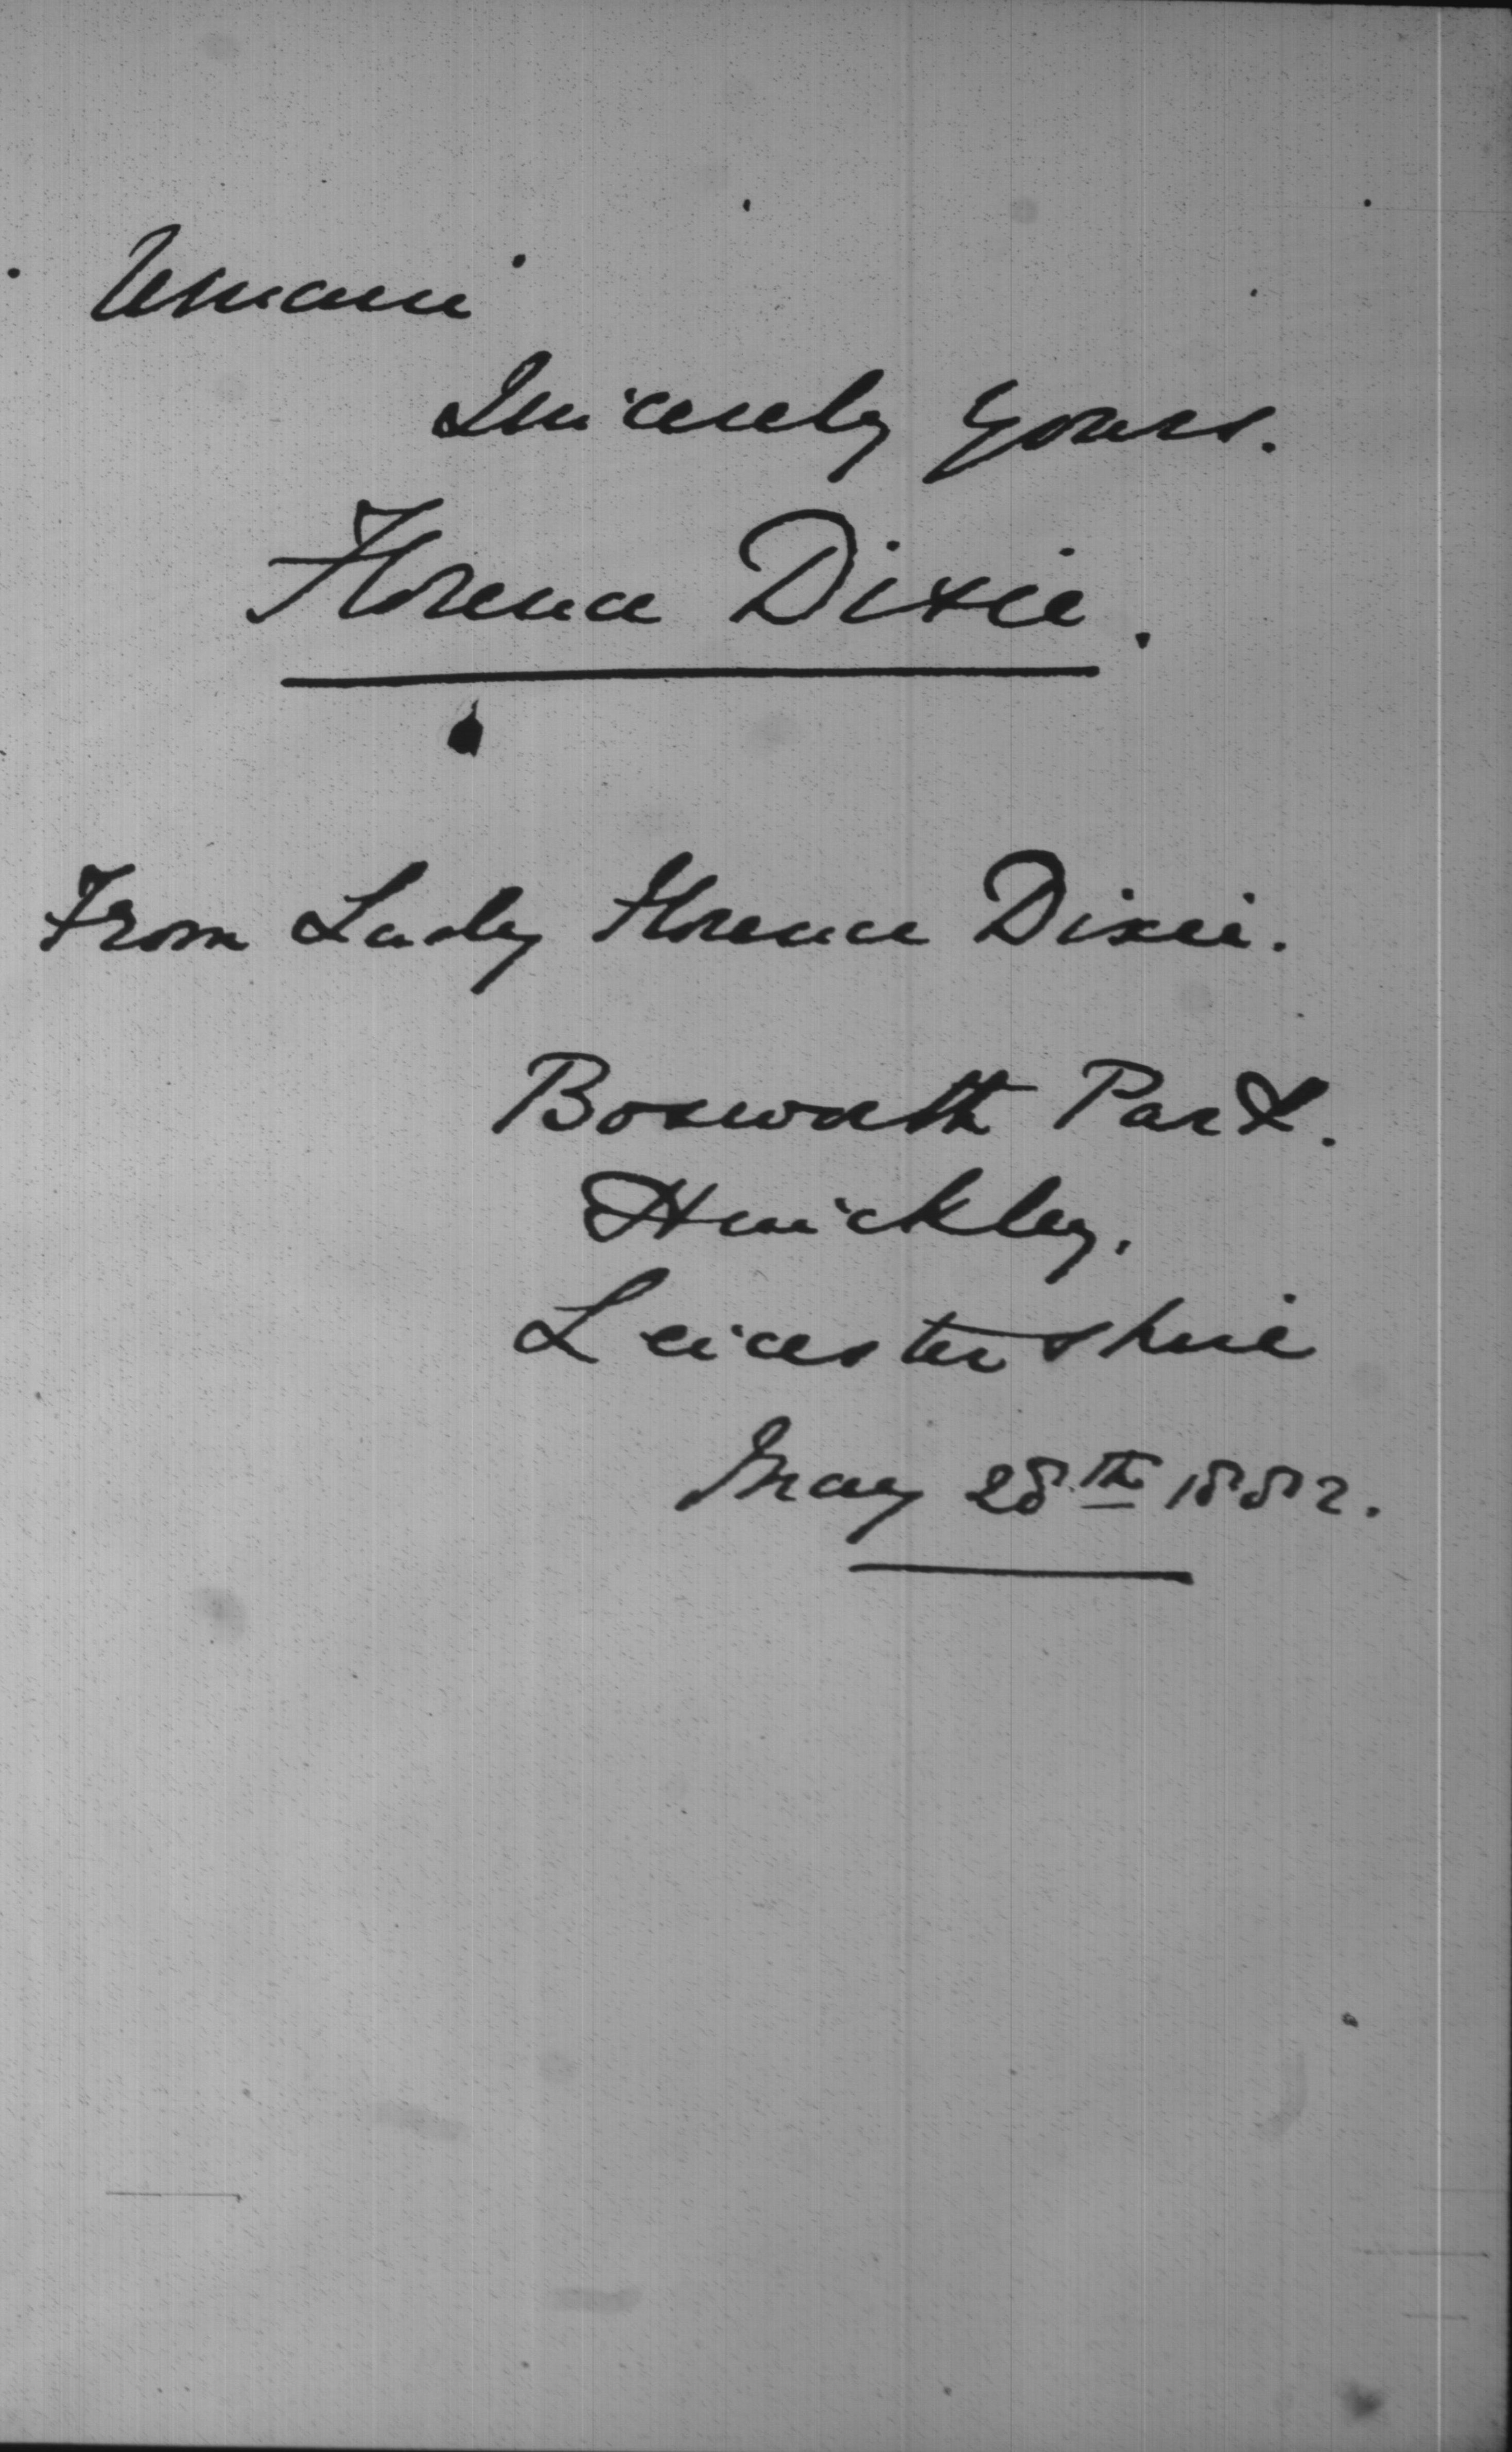 remain
Sincerely Yours.
Florence Dixie.
From Lady Florence Dixie.
Bosworth Park.
Hinckley.
Leicestershire
May 28th 1882.